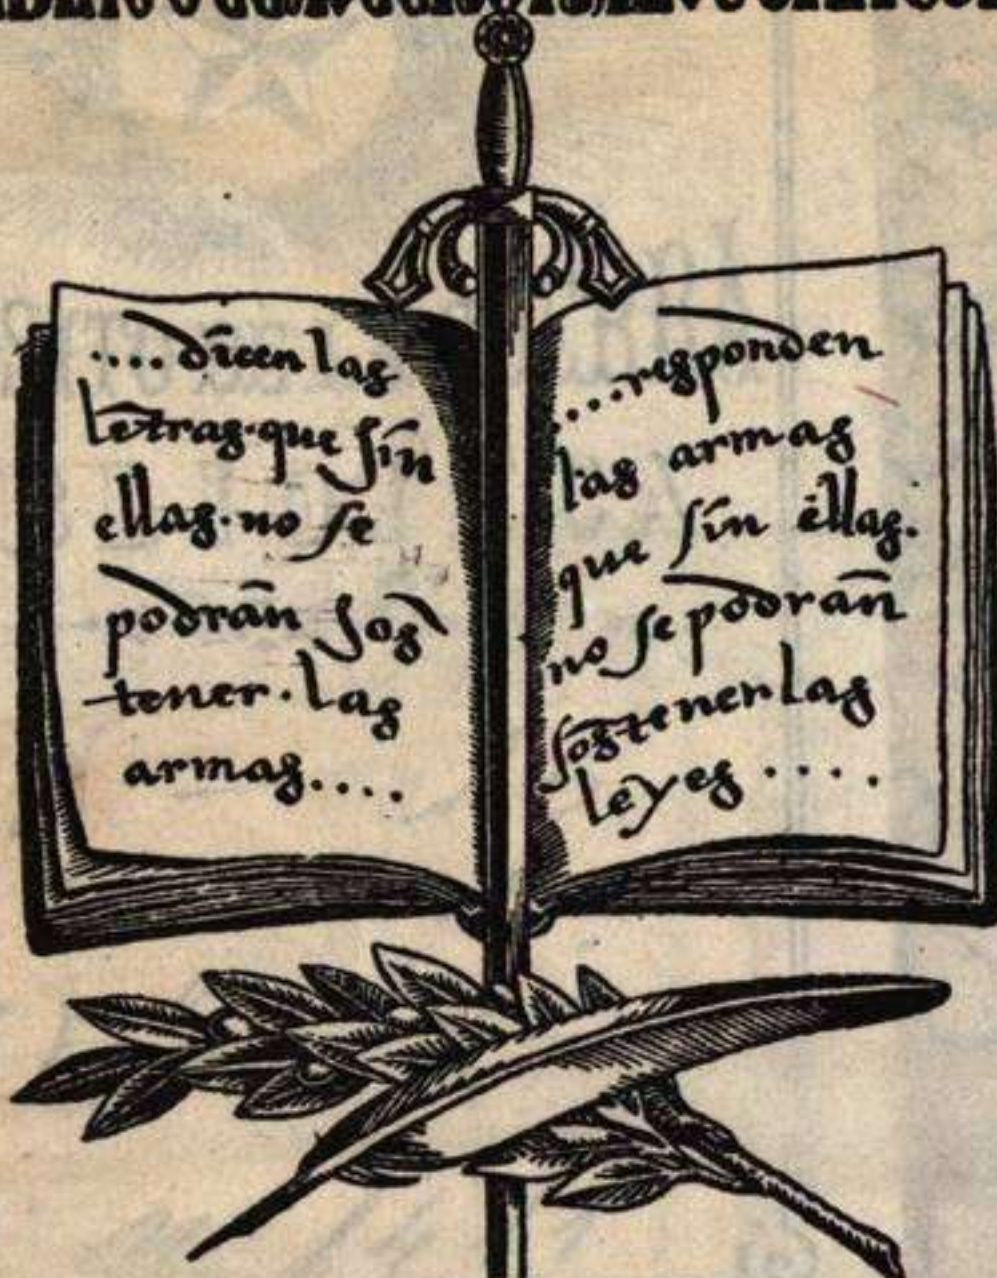 ....dicen las
letras·que sin
ellas·no se
podrán sos
tener·las
armas....
...responden
las armas
que sin ellas.
no se podrán
sostener las
leyes....